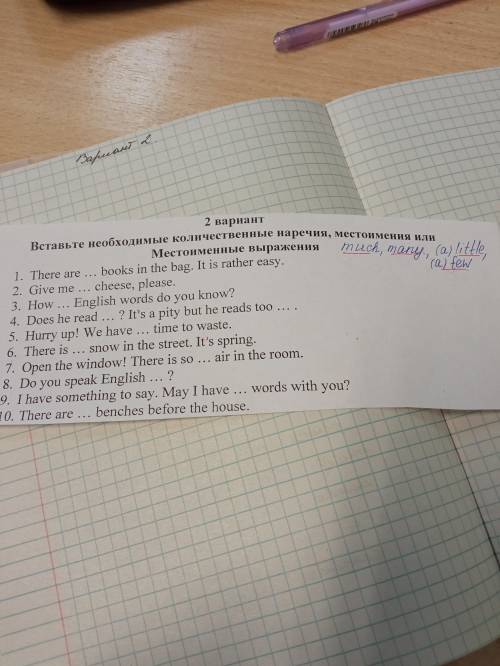 Вариант 2.
2 вариант
Вставьте необходимые количественные наречия, местоимения или
Местоименные выражения much, many, (a) little,
(a) few
1. There are … books in the bag. It is rather easy.
2. Give me … cheese, please.
3. How … English words do you know?
4. Does he read … ? It's a pity but he reads too … .
5. Hurry up! We have … time to waste.
6. There is … snow in the street. It's spring.
7. Open the window! There is so … air in the room.
8. Do you speak English … ?
9. I have something to say. May I have … words with you?
10. There are … benches before the house.